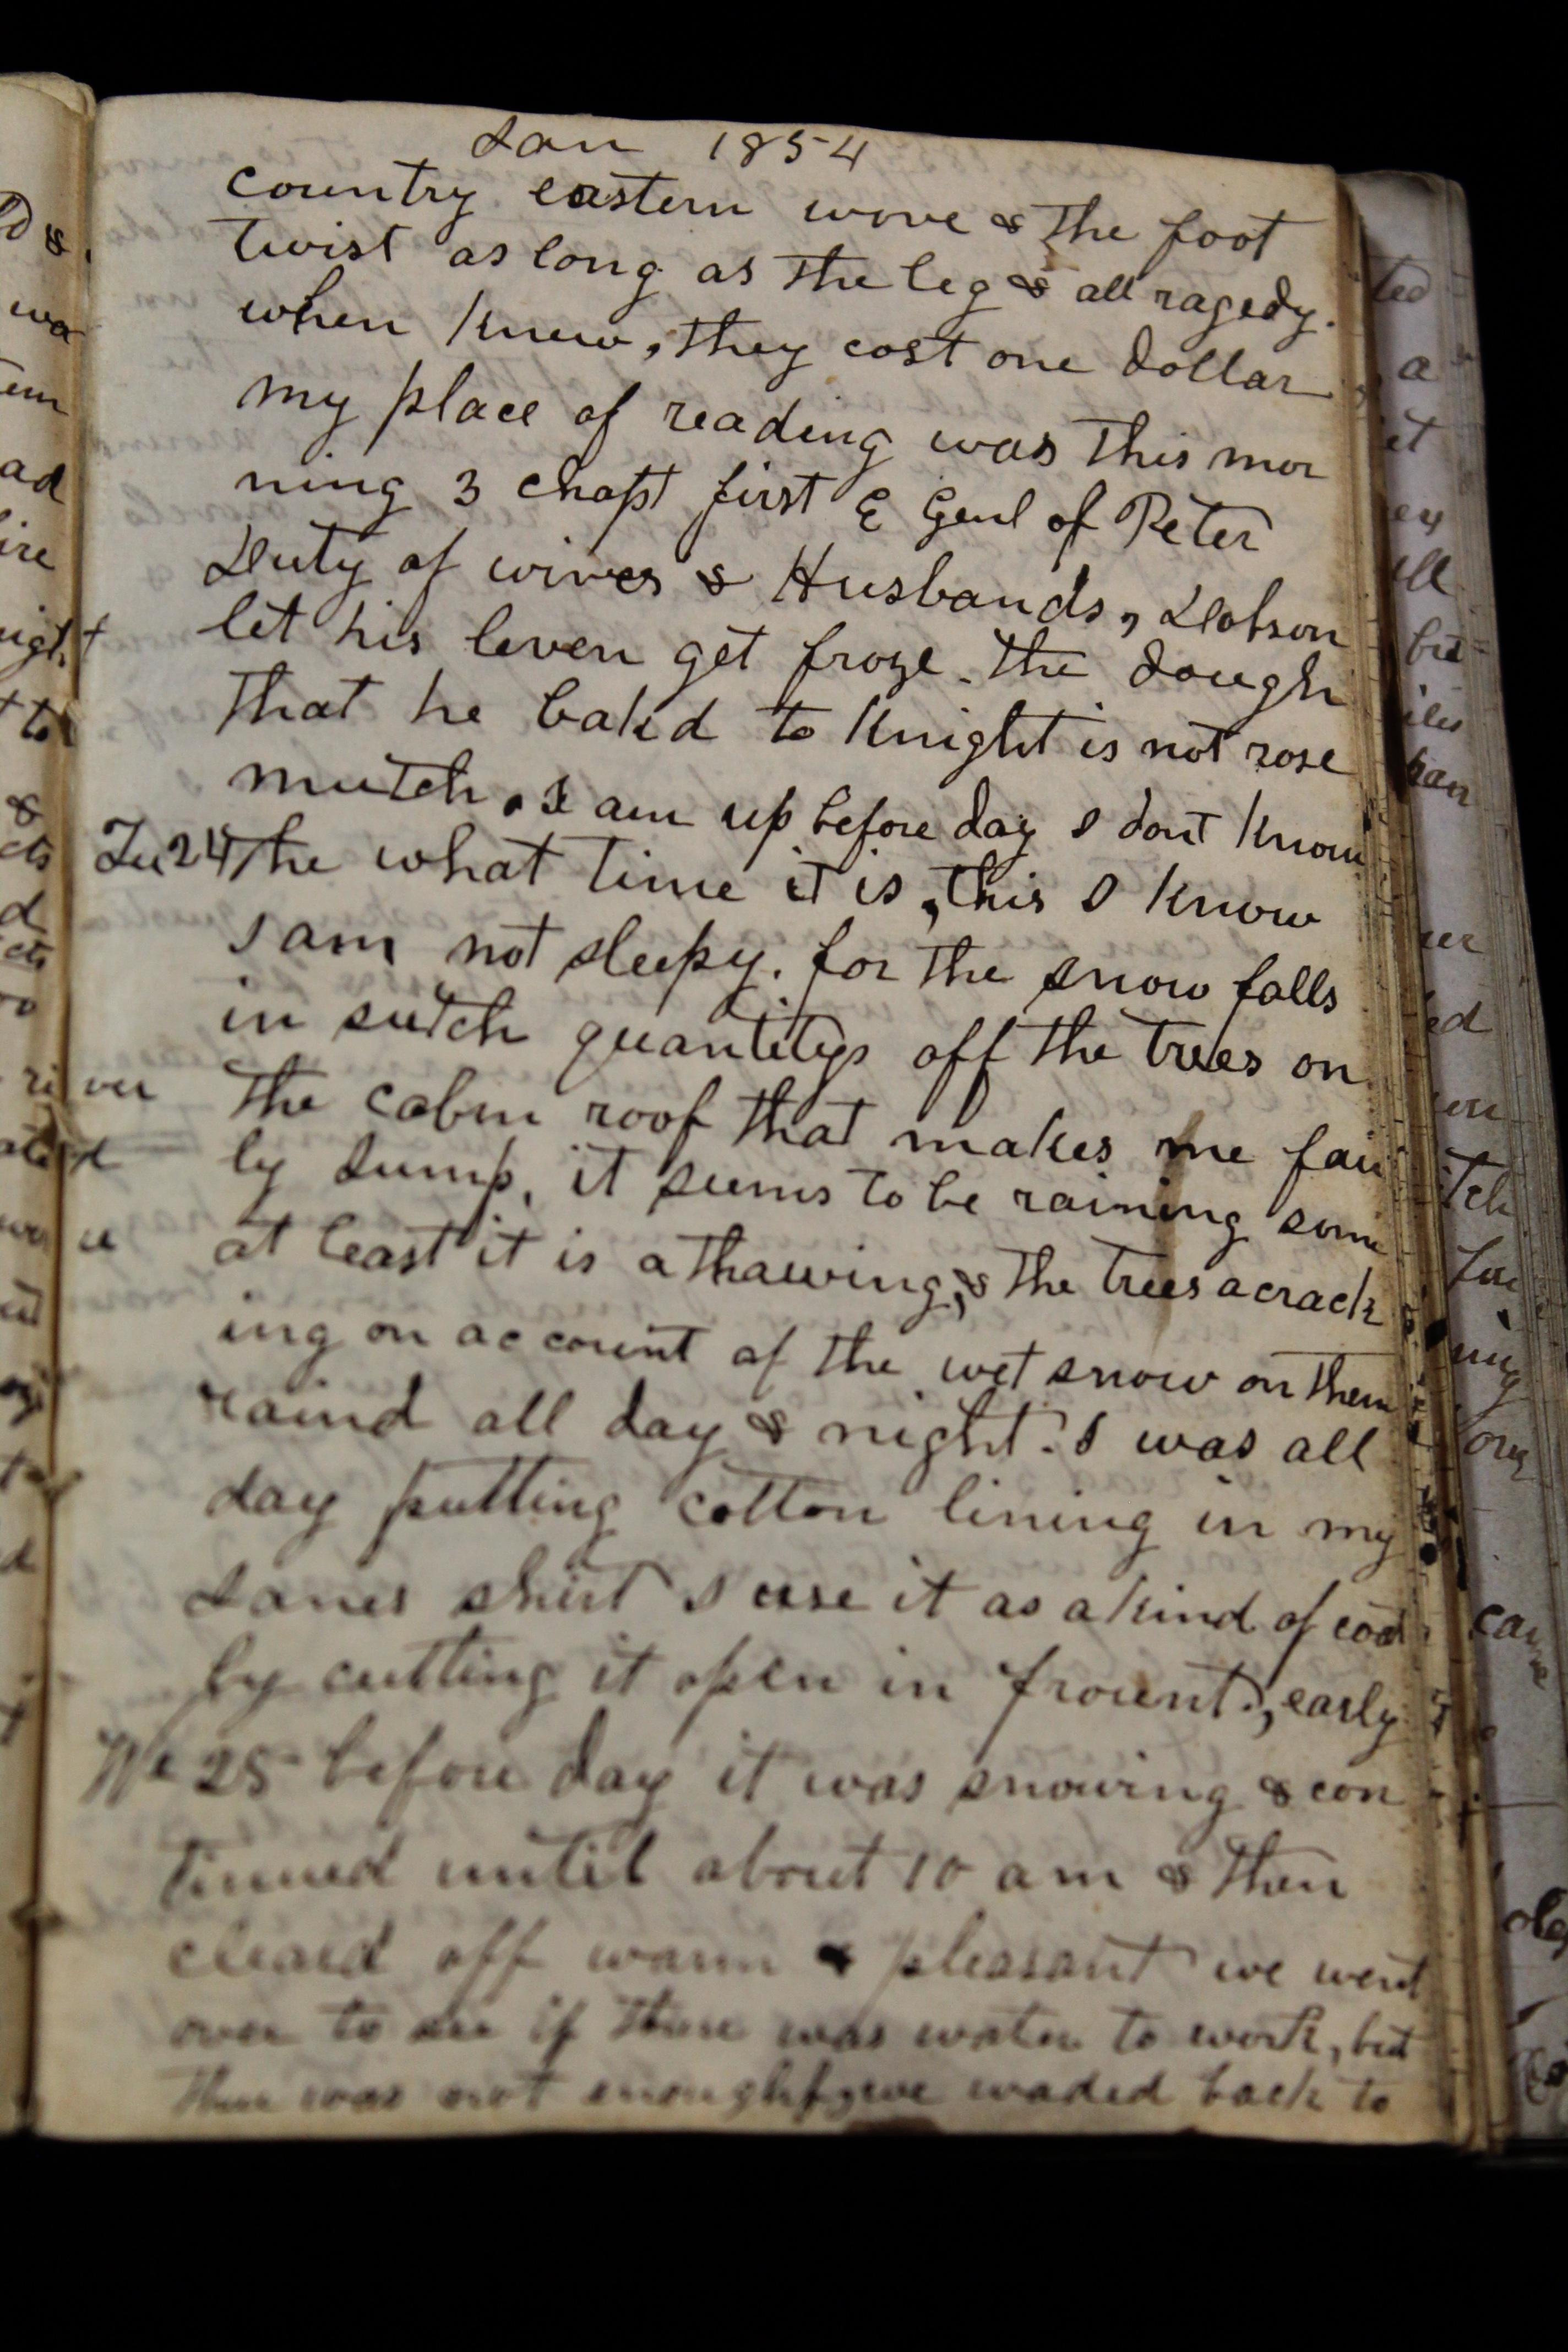 Jan 1854
country eastern wove & the foot
twist as long as the leg & all ragedy.
when knew, they cost one dollar
my place of reading was this mor
ning 3 chapt first E Genl of Peter
Duty of wives & Husbands, Dobson
let his leven get froze. the dough
that he bakd to Knight is not rose
mutch. I am up before day I dont know
Tu 24 The what time it is, this I know
I am not sleepy. for the snow falls
in sutch quantitys off the trees on
the cabin roof that makes me fair
ly Jump, it seems to be raining some
at least it is a thawing, & the trees a crack
ing on account of the wet snow on them
raind all day & night. I was all
day putting cotton lining in my
Janes shirt I use it as a kind of coat
by cutting it open in frount., early
We 25 before day it was snowing & con
tinued until about 10 am & then
cleard off warm & pleasant we went
over to see if there was water to work, but
there was not enough we waded back to